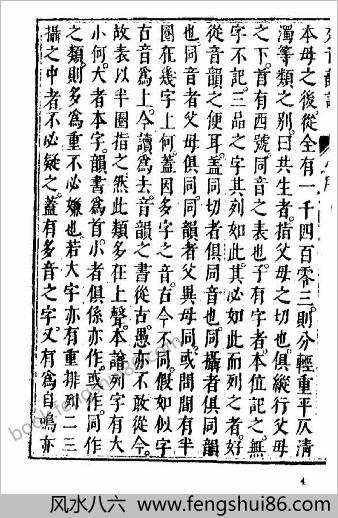 本母之後從全有一千四百零三。則分輕重平仄清
濁等類之別。曰共生者。指父母之切也。俱縱行父母
之下。首有西號。同音之表也。于有字者。本位記之。無
字不記。三品之字。其列如此。其必如此而列之者。好
從音韻之便耳。蓋同切者。俱同音也。同攝者。俱同韻
也。同音者。父母俱同。同韻者。父異母同。或問間有半
圈在幾字上。何。蓋因多字之音。古今不同。假如似字
古音為上。今讀為去。音韻之書從古。愚亦不敢從今。
故表以半圈指之。然此類多在上聲。本譜列字。有大
小。何。大者本字。韻書為首。小者俱係亦作。或作。同作
之類。則多為重。不必嫌也。若大字亦有重排列二三
攝之中者。不必疑之。蓋有多音之字。又有為自鳴亦
book.fengshui86.com
4
风水八六 www.fengshui86.com